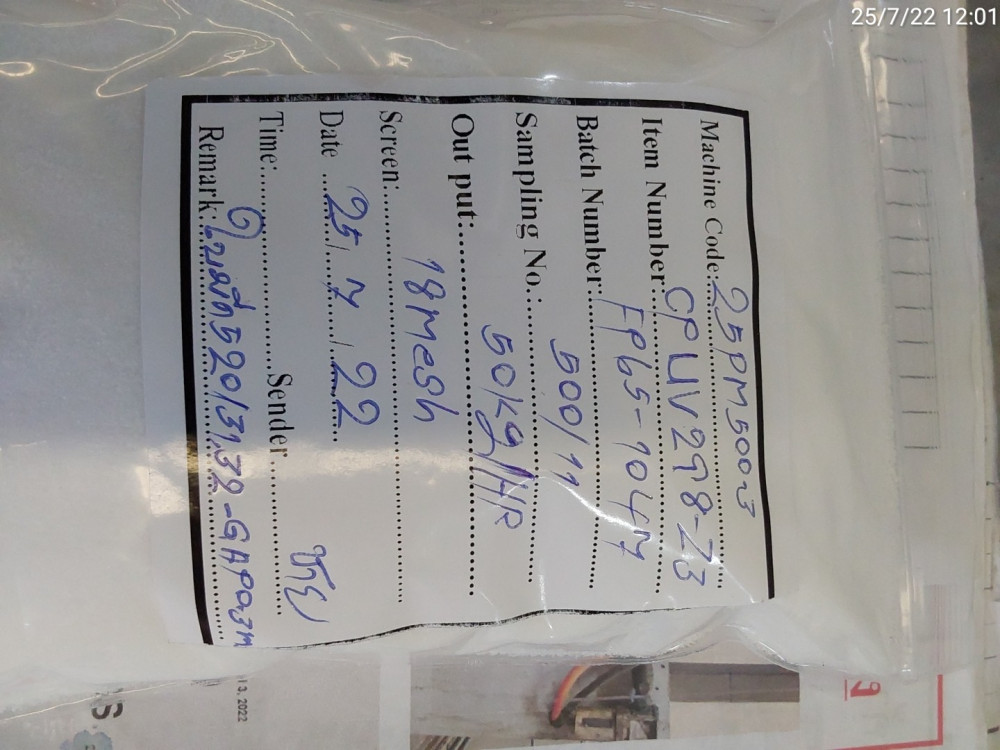 25/7/22 12:01
Machine Code: 25PM5003
Item Number CPUV298-Z3
Batch Number: FP65-1047
Sampling No.: 500/11
Out put: 50kg/HR
Screen: 18mesh
Date 25/7/22
Time: Sender
Remark: ใบมีด 520/31,32-GAP0.3m
3, 2022